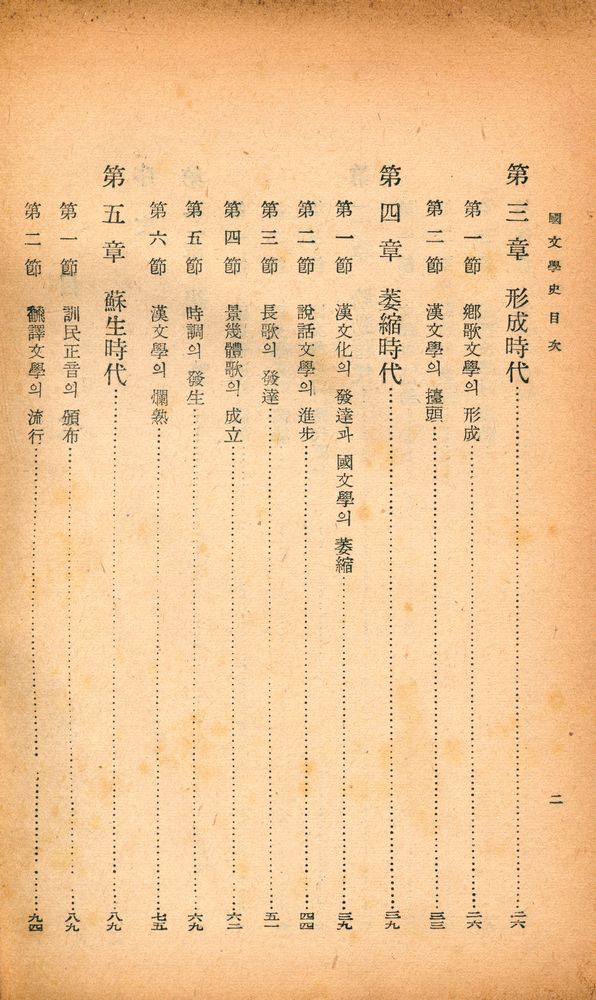 國文學史目次
二
第三章 形成時代 二六
第一節 鄕歌文學의 形成 二六
第二節 漢文學의 擡頭 三三
第四章 萎縮時代 三九
第一節 漢文化의 發達과 國文學의 萎縮 三九
第二節 說話文學의 進步 四四
第三節 長歌의 發達 五一
第四節 景幾體歌의 成立 六二
第五節 時調의 發生 六九
第六節 漢文學의 爛熟 七五
第五章 蘇生時代 八九
第一節 訓民正音의 頒布 八九
第二節 飜譯文學의 流行 九四